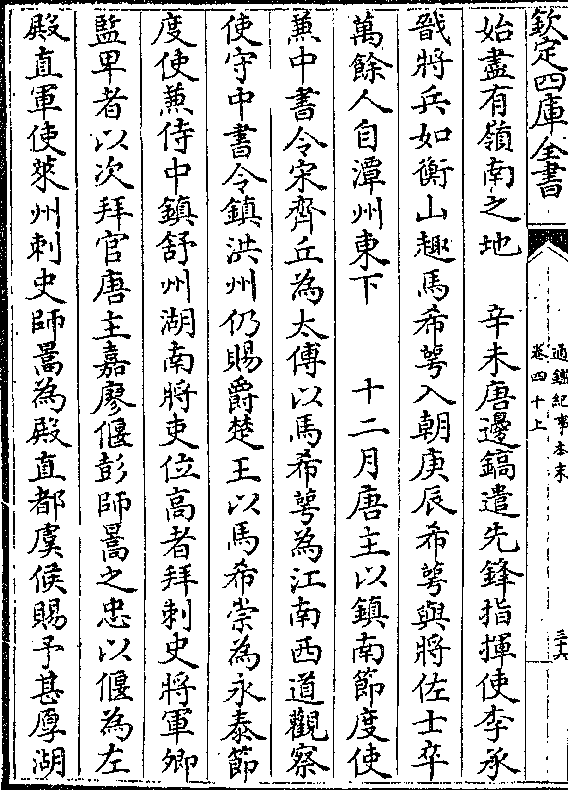 欽定四庫全書
通鑑紀事本末
卷四十上
三十六
始盡有嶺南之地　辛未唐邊鎬遣先鋒指揮使李承
戩將兵如衡山趣馬希萼入朝庚辰希萼與將佐士卒
萬餘人自潭州東下　十二月唐主以鎮南節度使
兼中書令宋齊丘為太傅以馬希萼為江南西道觀察
使守中書令鎮洪州仍賜爵楚王以馬希崇為永泰節
度使兼侍中鎮舒州湖南將吏位高者拜刺史將軍卿
監卑者以次拜官唐主嘉廖偃彭師暠之忠以偃為左
殿直軍使萊州刺史師暠為殿直都虞候賜予甚厚湖